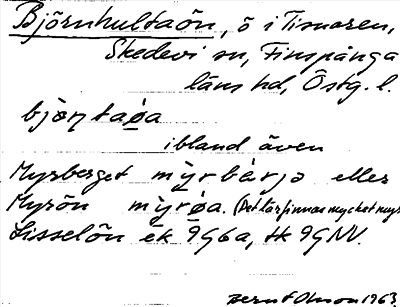 Björnhultaön, ö i Tisnaren,
Skedevi sn, Finspånga
läns hd, Östg. l.
bjö̀ṇtaøa
ibland även
Myrberget mỳrbärjə eller
Myrön mỳrøa. (Det lär finnas mycket myr
Lisselön ek 9G6a, tk 9GNV.
Bernt Olsson 1963